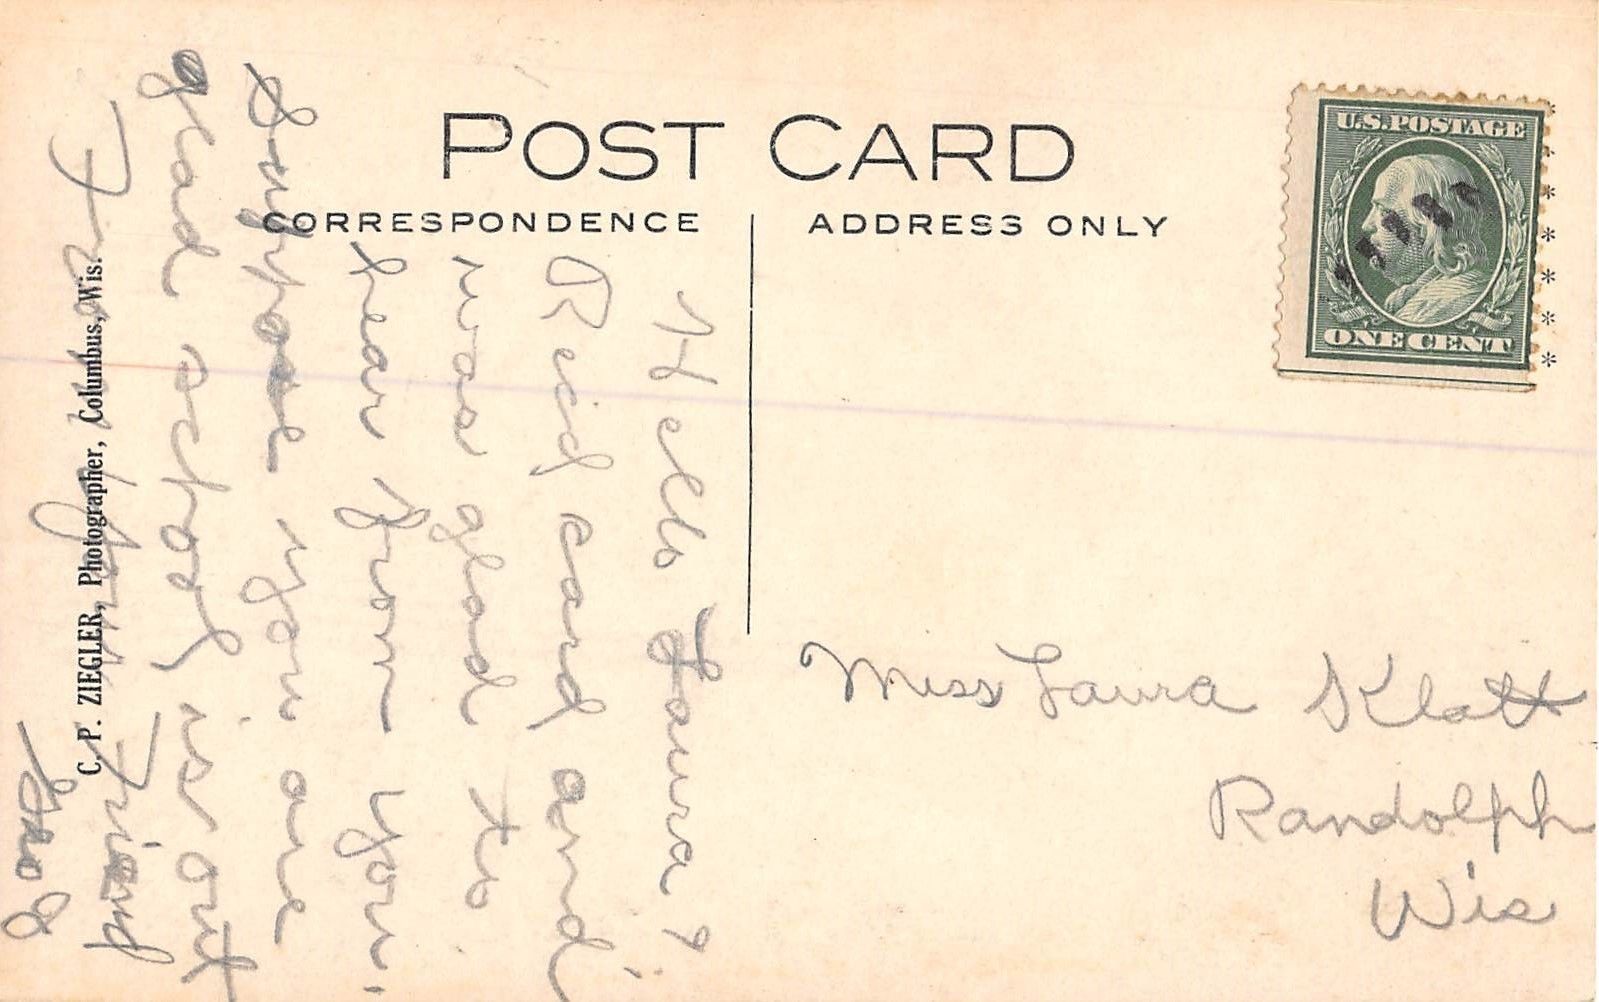 POST CARD
CORRESPONDENCE
ADDRESS ONLY
U.S.POSTAGE
ONE CENT
Hello Laura?
Reid card and
was glad to
hear from you.
Suppose you are
glad school is out
From your Friend
C. P. ZIEGLER, Photographer, Columbus, Wis.
Miss Laura Klatt
Randolph
Wis